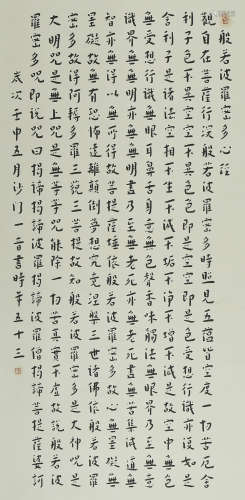 般若波羅蜜多心經
觀自在菩薩行深般若波羅蜜多時照見五蘊皆空度一切苦厄舍
利子色不異空空不異色色即是空空即是色受想行識亦復如是
舍利子是諸法空相不生不滅不垢不淨不增不減是故空中無色
無受想行識無眼耳鼻舌身意無色聲香味觸法無眼界乃至無意
識界無無明亦無無明盡乃至無老死亦無老死盡無苦集滅道無
智亦無得以無所得故菩提薩埵依般若波羅蜜多故心無罣礙無
罣礙故無有恐怖遠離顛倒夢想究竟涅槃三世諸佛依般若波羅
蜜多故得阿耨多羅三藐三菩提故知般若波羅蜜多是大神咒是
大明咒是無上咒是無等等咒能除一切苦真實不虛故說般若波
羅蜜多咒即說咒曰揭諦揭諦波羅揭諦波羅僧揭諦菩提薩婆訶
歲次壬申五月沙門一音書時年五十三